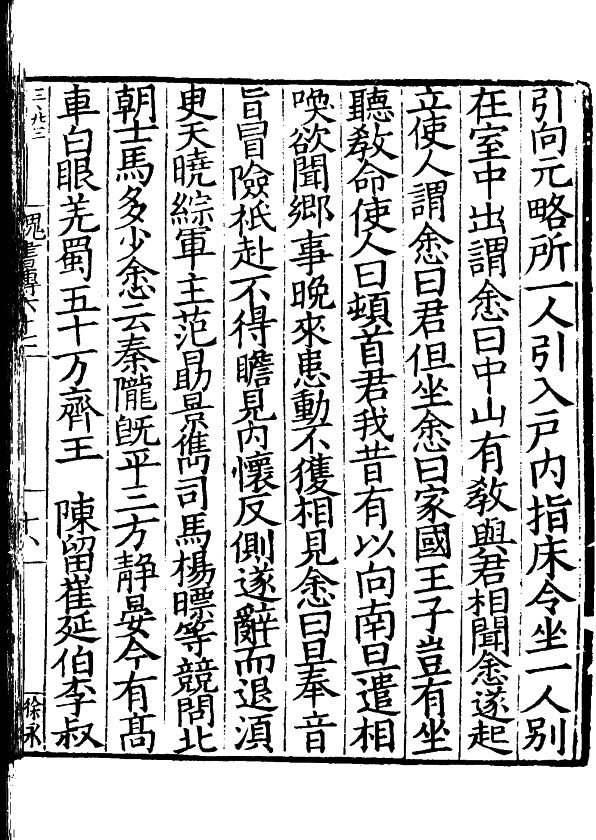 引向元略所一人引入戶內指床令坐一人別
在室中出謂悆曰中山有敎與君相聞悆遂起
立使人謂悆曰君但坐悆曰家國王子豈有坐
聽敎命使人曰頓首君我昔有以向南旦遣相
喚欲聞郷事晚來患動不獲相見悆曰旦奉音
旨冒險祇赴不得瞻見內懷反側遂辭而退湏
更天曉綜軍主范勗景儁司馬楊㬓等競問北
朝士馬多少悆云秦隴旣平三方静晏今有髙
車白眼羌蜀五十万齊王 陳留崔延伯李叔
魏書傳六十七
十八
徐永